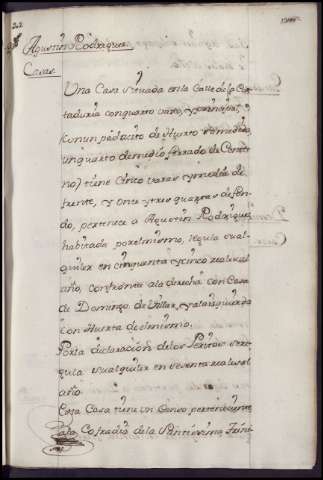 Agustin Rodriguez
Casas
Una Casa situada en la Calle de la
con quarto vajo, y principal,
y con un pedacito de Huerto
un quarto de medio ferrado de Cente
no) tiene cinco varas y media de
frente, y once y tres quartas de fon
do, pertenece a Agustin Rodriguez
habitada por el mismo, regula su al
quiler en cinquenta y cinco reales al
año, confronta ala derecha con Casa
de Domingo de Villar, y ala izquierda
con Huerta de el mismo.
Por la declaracion de los Peritos se re
gula su alquiler en sesenta reales al
año
Esta Casa tiene un Censo perteneciente
ala Cofradia de la Santissima Trini